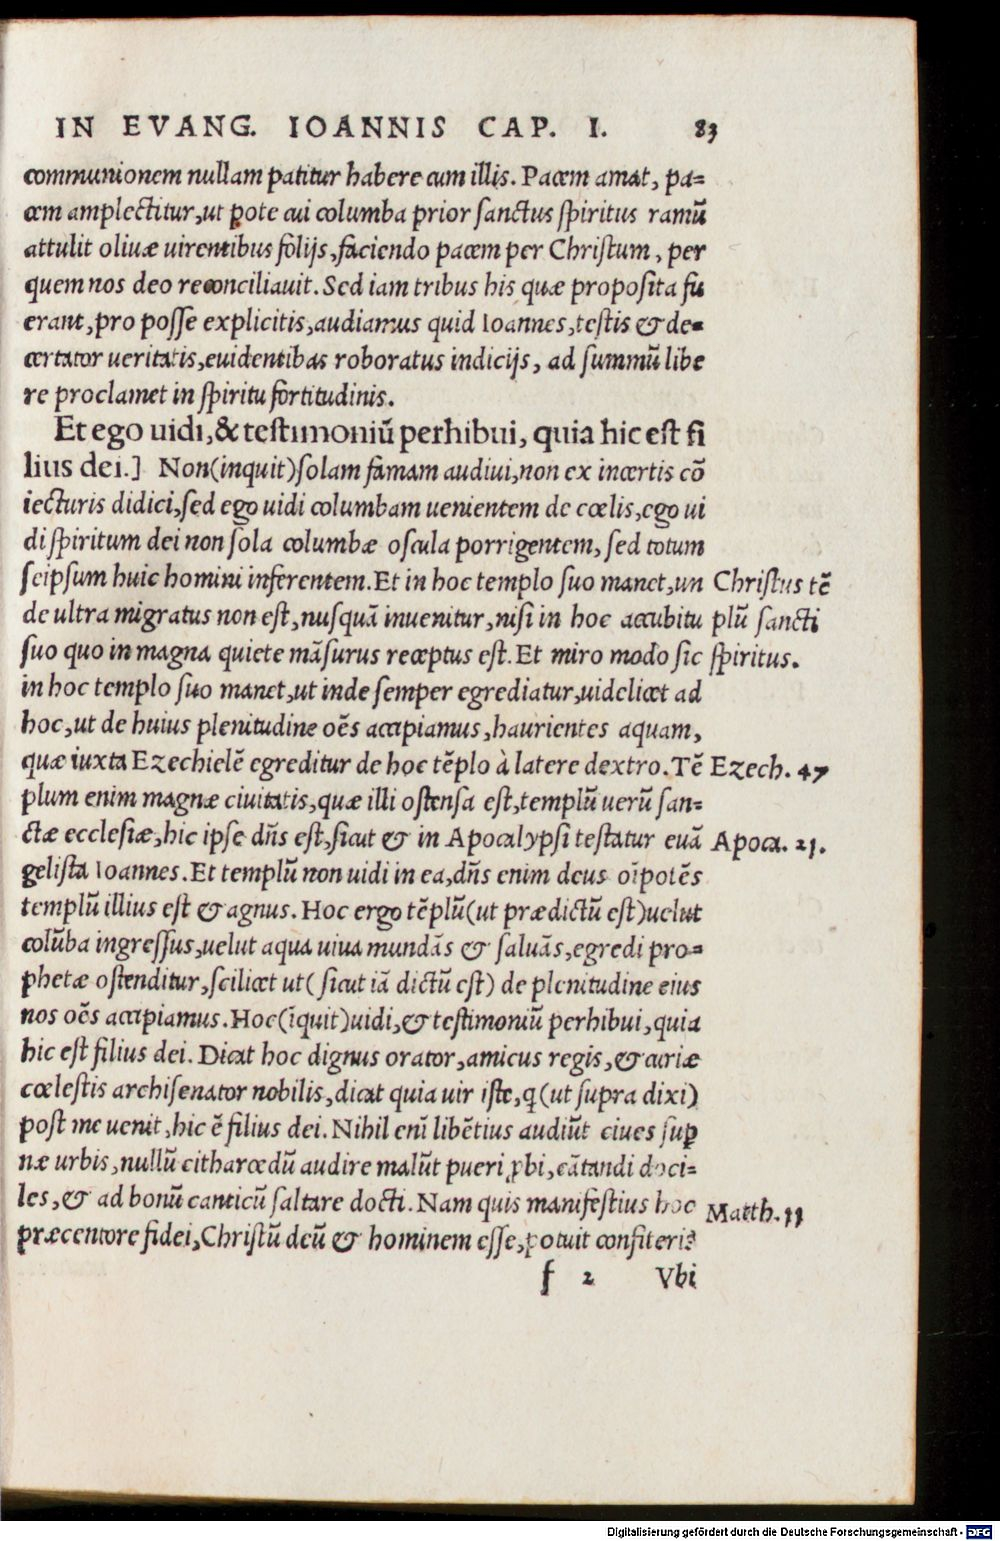 IN EVANG. IOANNIS CAP. I. 83
communionem nullam patitur habere cum illis. Pacem amat, pa=
cem amplectitur,ut pote cui columba prior ſanctus ſpiritus ramũ
attulit oliuæ uirentibus folijs,faciendo pacem per Chriſtum, per
quem nos deo reconciliauit. Sed iam tribus his quæ propoſita fu
erant,pro poſſe explicitis,audiamus quid Ioannes,teſtis & de=
certator ueritatis,euidentibas roboratus indicijs, ad ſummũ libe
re proclamet in ſpiritu fortitudinis.
Et ego uidi,& teſtimoniũ perhibui, quia hic eſt fi
lius dei.] Non(inquit)ſolam famam audiui,non ex incertis cõ
iecturis didici,ſed ego uidi columbam uenientem de cœlis,ego ui
di ſpiritum dei non ſola columbæ oſcula porrigentem, ſed totum
ſeipſum huic homini inferentem.Et in hoc templo ſuo manet,un
Chriſtus tẽ
de ultra migratus non eſt,nuſquã inuenitur,niſi in hoc accubitu
plũ ſancti
ſuo quo in magna quiete mãſurus receptus eſt. Et miro modo ſic
ſpiritus.
in hoc templo ſuo manet,ut inde ſemper egrediatur,uidelicet ad
hoc,ut de huius plenitudine oẽs accipiamus,haurientes aquam,
quæ iuxta Ezechielẽ egreditur de hoc tẽplo à latere dextro.Tẽ
Ezech. 47
plum enim magnæ ciuitatis,quæ illi oſtenſa eſt,templũ uerũ ſan=
ctæ eccleſiæ,hic ipſe dñs eſt,ſicut & in Apocalypſi teſtatur euã
Apoca. 21.
geliſta Ioannes. Et templũ non uidi in ea,dñs enim deus oĩpotẽs
templũ illius eſt & agnus. Hoc ergo tẽplũ(ut prædictũ eſt)uelut
colũba ingreſſus,uelut aqua uiua mundãs & ſaluãs,egredi pro=
phetæ oſtenditur,ſcilicet ut( ſicut iã dictũ eſt) de plenitudine eius
nos oẽs accipiamus. Hoc(ĩquit)uidi,& teſtimoniũ perhibui,quia
hic eſt filius dei. Dicat hoc dignus orator,amicus regis,& curiæ
cœleſtis archiſenator nobilis,dicat quia uir iſte,q̃(ut ſupra dixi)
poſt me uenit,hic ẽ filius dei. Nihil enĩ libẽtius audiũt ciues ſuꝑ
næ urbis,nullũ citharœdũ audire malũt pueri ꝓbi,cãtandi doci=
les,& ad bonũ canticũ ſaltare docti. Nam quis manifeſtius hoc
Matth. 11
præcentore fidei,Chriſtũ deũ & hominem eſſe,potuit confiteri?
f 2 Vbi
Digitalisierung gefördert durch die Deutsche Forschungsgemeinschaft - DFG